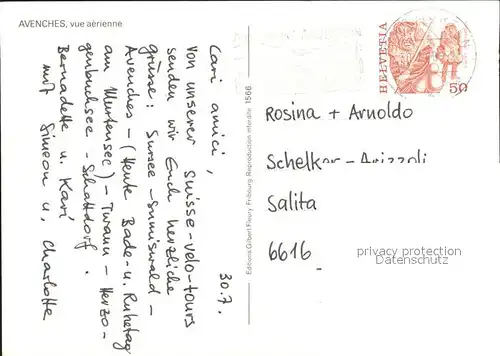 AVENCHES, vue aérienne
30.7.
Cari amici,
von unserer Suisse-velo-tours
senden wir Euch herzliche
grüsse: Sursee - Sumiswald -
Avenches - (Heute Bade- u. Ruhetag
am Murtensee) - Twann - Herzo-
genbuchsee - Schattdorf.
Bernadette u. Kari
mit Simeon u. Charlotte
Editions Gilbert Fleury Fribourg Reproduction interdite 1566
HELVETIA
50
Rosina + Arnoldo
Schelker - Arizzoli
Salita
6616
privacy protection
www.ansichtskarten-center.de